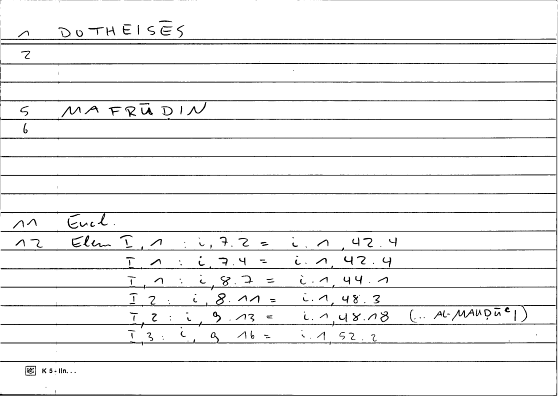 1 DOTHEISĒS
2
5 MAFRŪḌIN
6
11 Eucl.
12 Elem I, 1 : i, 7.2 = i.1, 42.4
I, 1 : i, 7.4 = i.1, 42.4
I, 1 : i, 8.7 = i.1, 44.1
I, 2 : i, 8.11 = i.1, 48.3
I, 2 : i, 9.13 = i.1, 48.18 (... AL-MAUḌŪʿ)
I, 3 : i, 9 16 = i.1, 52.2
K 5 - lin. . .